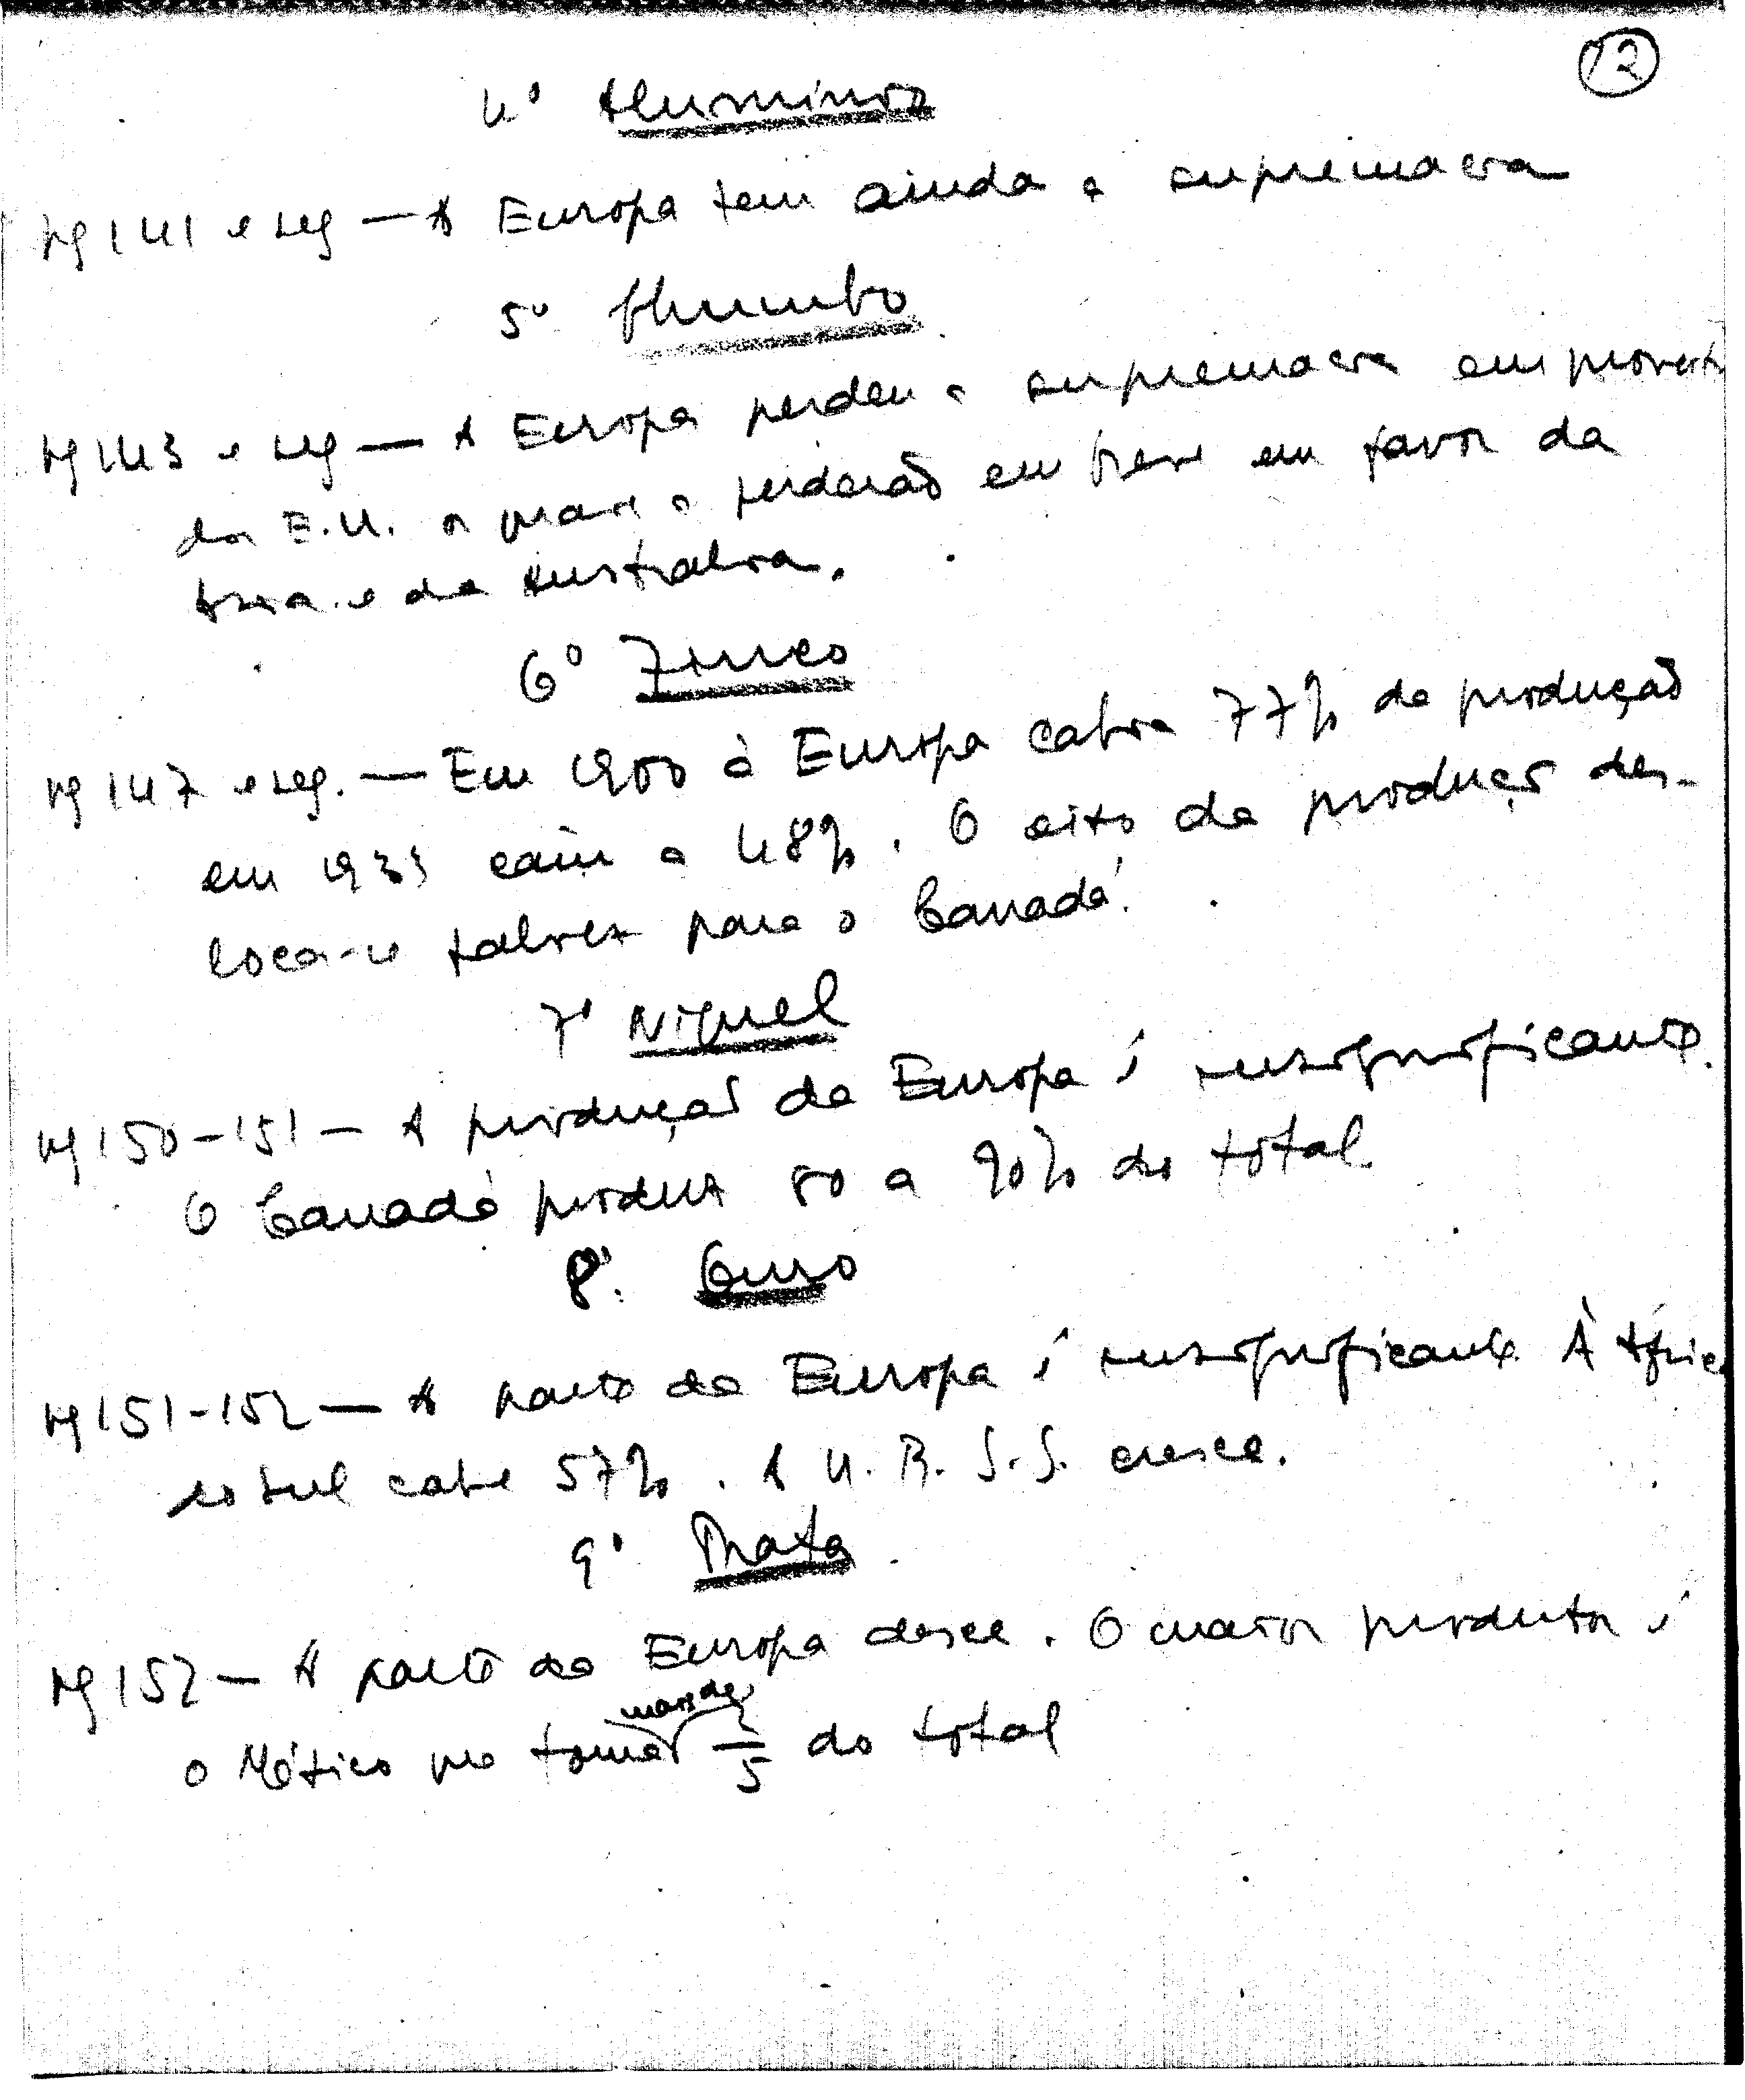 12
4º Aluminio
pg 141 e seg — A Europa tem ainda a supremacia
5º Chumbo
pg 143 e seg — A Europa perdeu a supremacia em proveito
dos E.U. os quais a perderão em breve em favor da
Asia e da Australia.
6º Zinco
pg 147 e seg. — Em 1900 à Europa cabia 77% da produção
em 1933 caiu a 48%. O eixo da produção des-
loca-se talvez para o Canadá.
7º Niquel
pg 150-151 — A produção da Europa é insignificante.
O Canadá produz 80 a 90% do total
8º. Ouro
pg 151-152 — A parte da Europa é insignificante. À Africa
do Sul cabe 57%. A U.R.S.S. cresce.
9º Prata
pg 152 — A parte da Europa desce. O maior produtor é
o México que toma mais de 2/5 do total